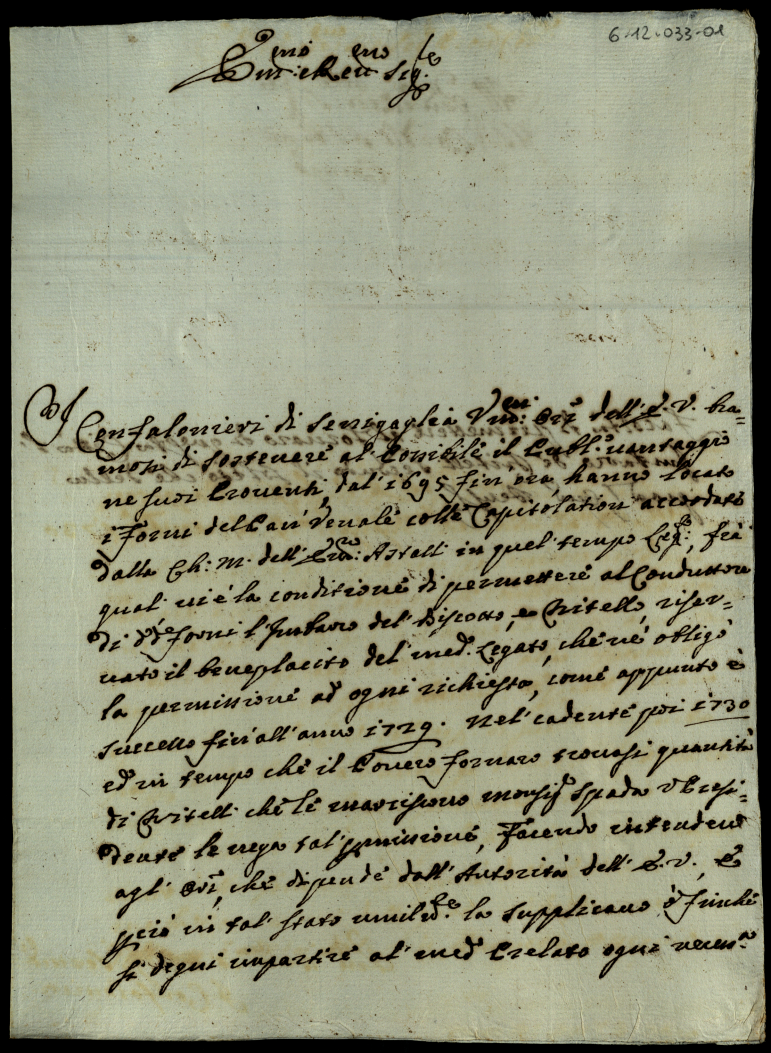 6-12-033-01
Em:mo e Rev:mo Sig:re
I Confalonieri di Senigaglia Um:mi Orī dell' E. V. bra=
mosi di sostenere al possibile il Publ.o vantaggio
ne suoi Proventi, dal' 1695 fin' ora hanno locato
i Forni del Pan' Venale colle Capitolationi accordate
dalla Ch: M: dell' Em:o Astalli in quel tempo Leg:to, frà
quali vi è la conditione di permettere al Conduttore
di d.i Forni l' Imbarco del Biscotto, e Tritello, riser=
vato il beneplacito del med.o Legato, che nè obligò
la permissione ad ogni richiesta, come appunto è
successo fin' all' anno 1729. Nel' cadente poi 1730
ed in tempo che il Povero Fornaro trovasi quantità
di Tritelli che le marciscono monsig.r Spada V. Presi=
dente le nega tal' p̄missione, Facendo intendere
agl' Orī, che dipende dall' Autorità dell' E. V., E
perciò in tal' stato umilm.te la supplicano à finchè
si degni impartire al med.o Prelato ogni necess.a